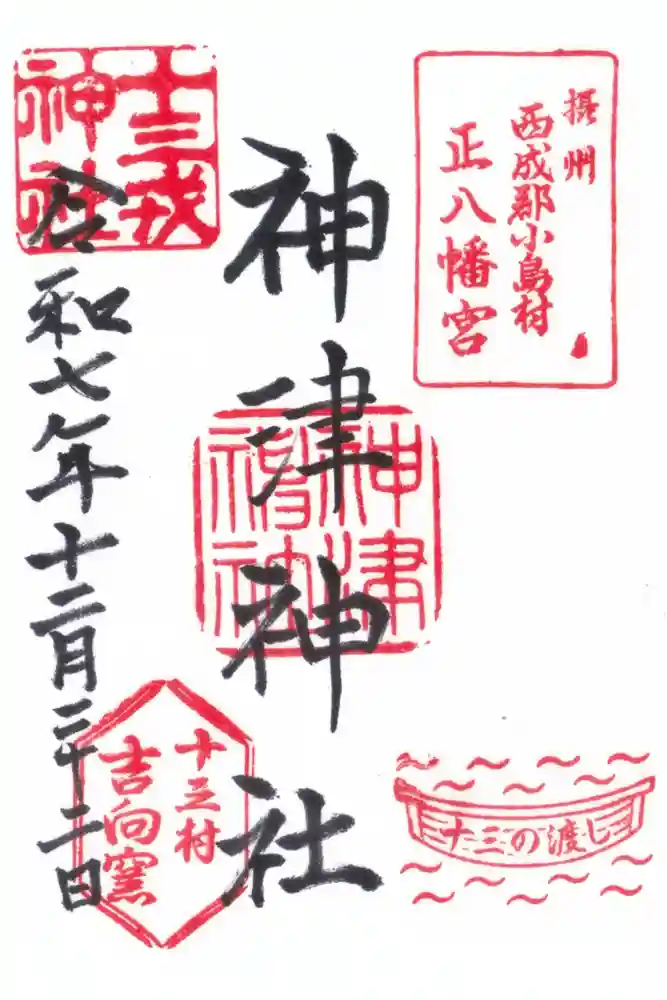 摂州
西成郡小島村
正八幡宮
神津神社
神津
十三戎
神社
令和七年十二月二十二日
十三村
吉向窯
十三の渡し